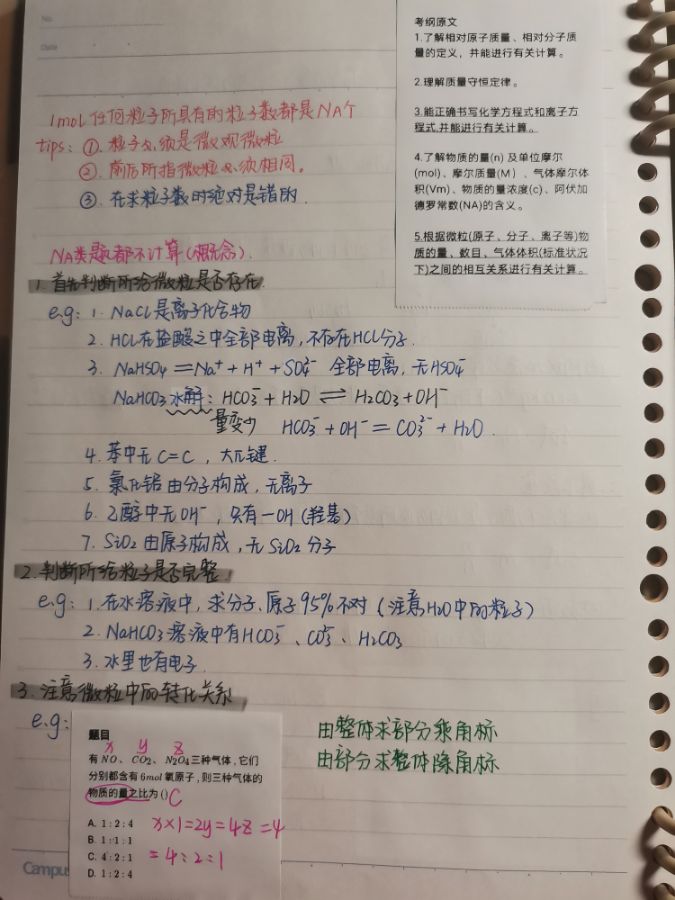 No.
Date
考纲原文
1.了解相对原子质量、相对分子质
量的定义，并能进行有关计算。
2.理解质量守恒定律。
3.能正确书写化学方程式和离子方
程式,并能进行有关计算。
4.了解物质的量(n) 及单位摩尔
(mol)、摩尔质量(M) 、气体摩尔体
积(Vm)、物质的量浓度(c)、阿伏加
德罗常数(NA)的含义。
5.根据微粒(原子、分子、离子等)物
质的量，数目，气体体积(标准状况
下)之间的相互关系进行有关计算。
1mol任何粒子所具有的粒子数都是NA个
tips: ①. 粒子必须是微观微粒
②. 前后所指微粒必须相同。
③. 在求粒子数时绝对是错的.
NA类题都不计算(概念).
1. 首先判断所给微粒是否存在.
e.g: 1. NaCl是离子化合物
2. HCl在盐酸之中全部电离,不存在HCl分子.
3. NaHSO₄ = Na⁺ + H⁺ + SO₄²⁻ 全部电离,无HSO₄⁻
NaHCO₃水解: HCO₃⁻ + H₂O ⇌ H₂CO₃ + OH⁻
量变少 HCO₃⁻ + OH⁻ = CO₃²⁻ + H₂O
4. 苯中无C=C , 大π键.
5. 氯化铝由分子构成,无离子
6. 乙醇中无OH⁻, 只有—OH(羟基)
7. SiO₂由原子构成,无SiO₂分子
2. 判断所给粒子是否完整
e.g: 1. 在水溶液中, 求分子、原子95%不对 (注意H₂O中的粒子)
2. NaHCO₃溶液中有HCO₃⁻、CO₃²⁻、H₂CO₃
3. 水里也有电子.
3. 注意微粒中的转化关系
e.g:
题目
x y z
有 NO、CO₂、N₂O₄三种气体,它们
分别都含有 6mol 氧原子,则三种气体的
物质的量之比为() C
A. 1:2:4 x×1=2y=4z=4
B. 1:1:1
C. 4:2:1 =4:2:1
D. 1:2:4
由整体求部分乘角标
由部分求整体除角标
Campus